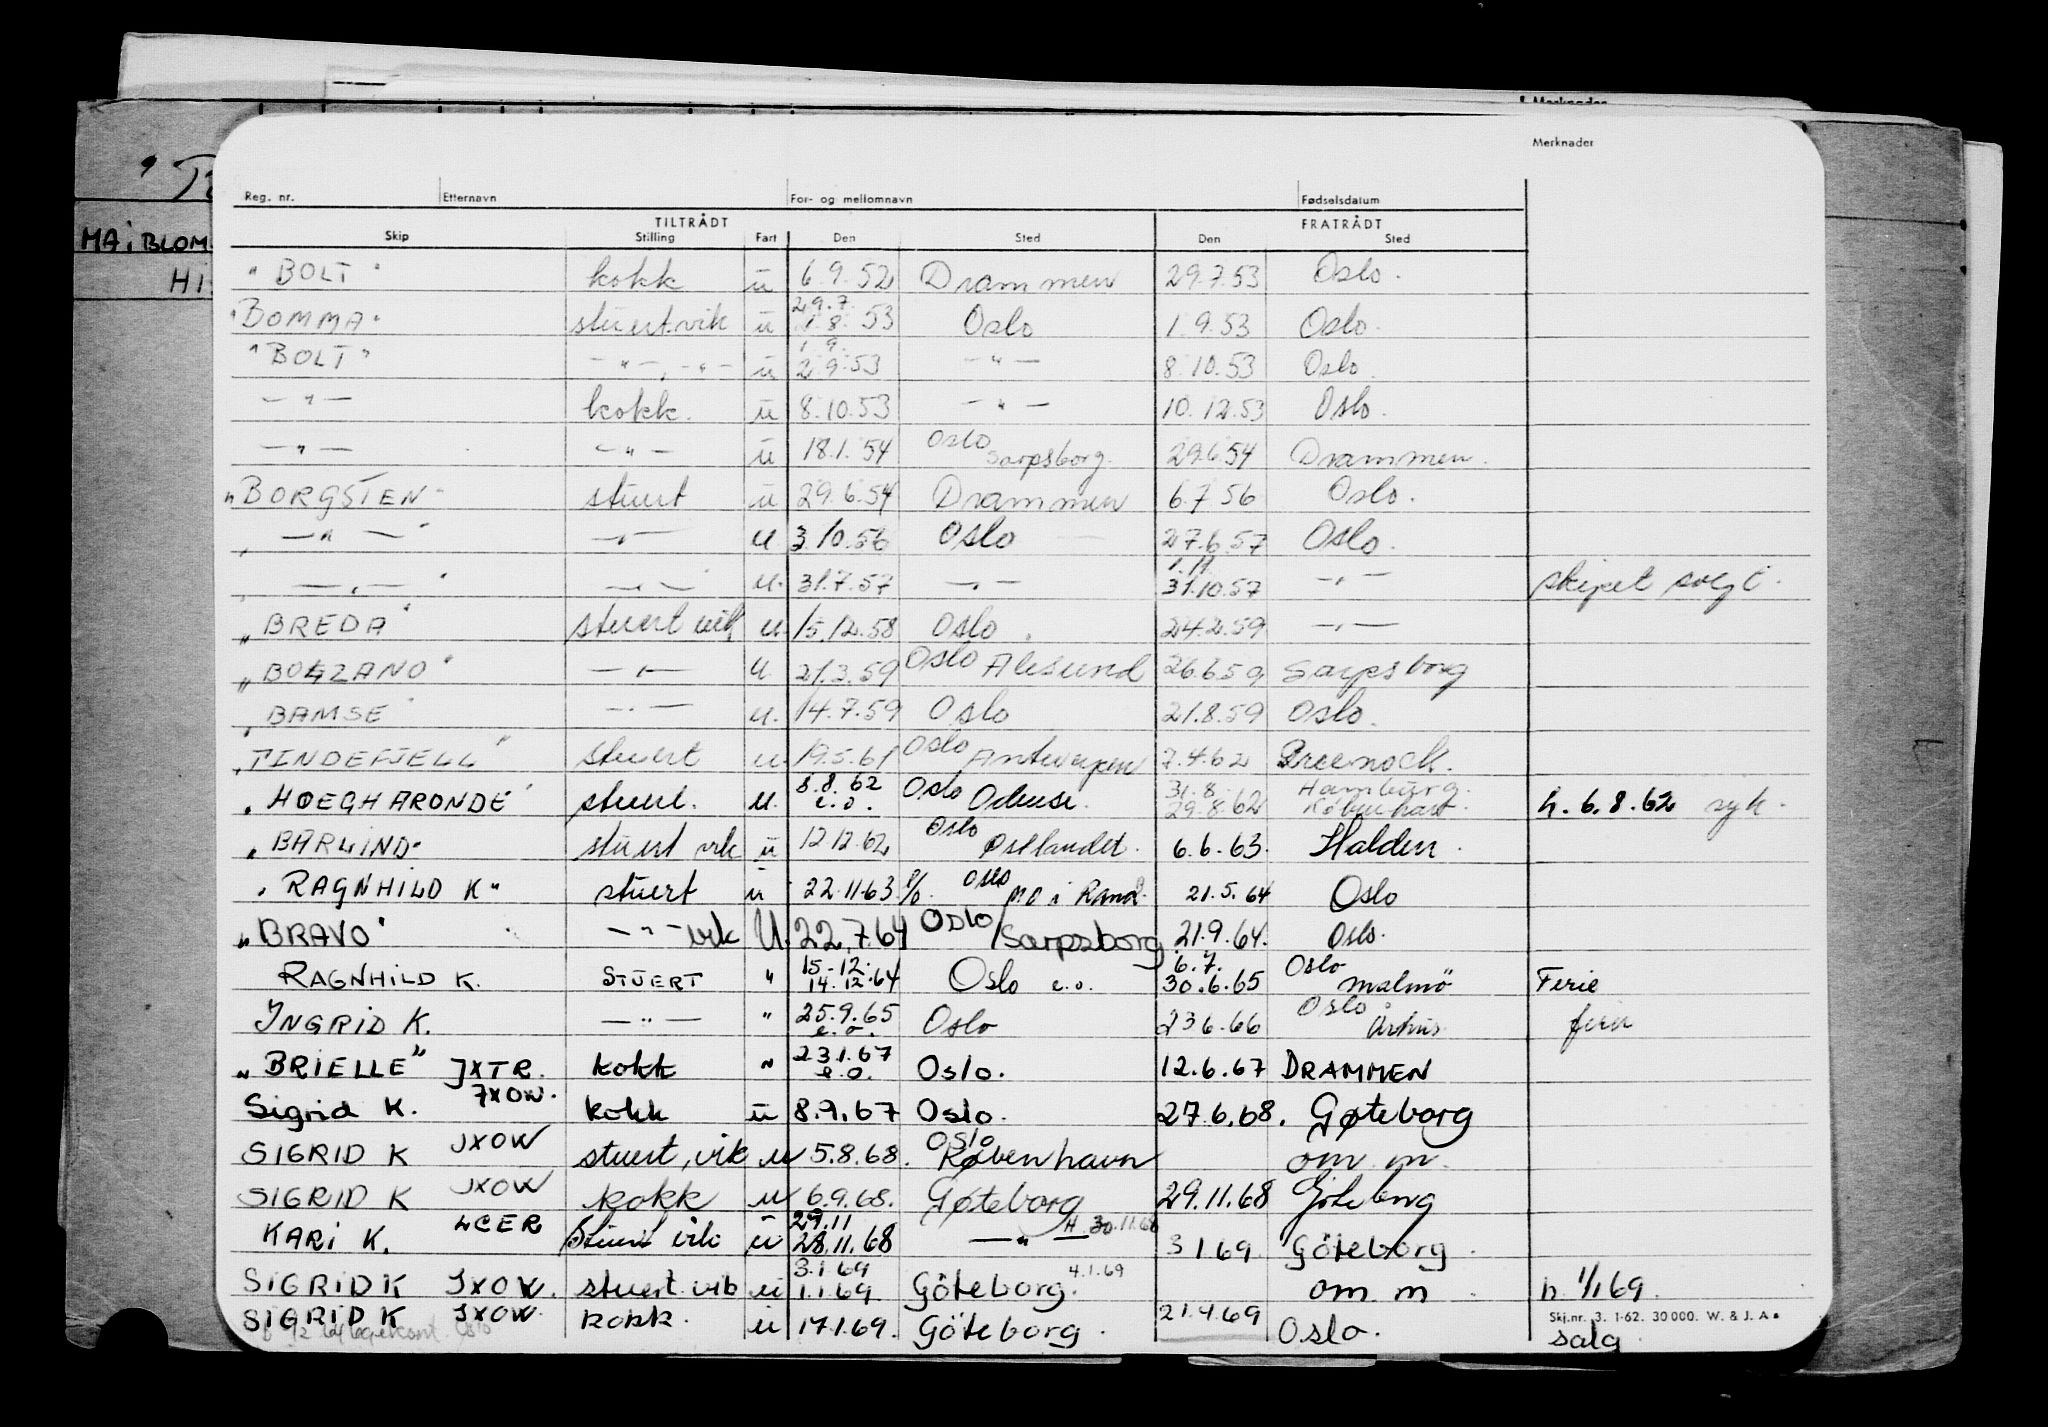 Merknader
Reg. nr. Etternavn For- og mellomnavn Fødselsdatum
TILTRÅDT FRATRÅDT
Skip Stilling Fart Den Sted Den Sted
MAIBLOM
HI
"BOLT" kokk u 6.9.52 Drammen 29.7.53 Oslo.
"BOMMA" stuert vik u 29.7. 1.8.53 Oslo 1.9.53 Oslo.
"BOLT" —"—, —"— u 1.9. 2.9.53 —"— 8.10.53 Oslo.
—"— kokk. u 8.10.53 —"— 10.12.53 Oslo.
—"— —"— u 18.1.54 Oslo Sarpsborg. 29.6.54 Drammen.
"BORGSTEN" stuert u 29.6.54 Drammen 6.7.56 Oslo.
—"— —"— u 3.10.56 Oslo 27.6.57 Oslo.
—"— —"— u. 31.7.57 —"— 1.11 31.10.57 —"— skipet solgt.
"BREDA" stuert vik u. 15.12.58 Oslo. 24.2.59 —"—
"BOLZANO" —"— u. 21.3.59 Oslo Ålesund 26.6.59 Sarpsborg
"BAMSE" —"— u. 14.7.59 Oslo 21.8.59 Oslo.
"TINDEFJELL" stuert u 19.5.61 Oslo Antwerpen 7.4.62 Greenock.
"HOEGH ARONDE" stuert. u. 8.8.62 e.o. Oslo Odense. 31.8. 29.8.62 Hamburg. København. h. 6.8.62 syk.
"BARLIND" stuert vik u 12.12.62 Oslo Østlandet. 6.6.63. Halden.
"RAGNHILD K" stuert u 22.11.63 Oslo 21.5.64 Oslo
"BRAVO" —"— vik U. 22.7.64 Oslo/Sarpsborg 21.9.64. Oslo.
RAGNHILD K. STUERT " 15.12. 14.12.64 Oslo e.o. 6.7. 30.6.65 Oslo malmö Ferie
INGRID K. —"— " 25.9.65 e.o. Oslo 23.6.66 Oslo Århus ferie
"BRIELLE" JXTR. kokk " 23.1.67 e.o. Oslo. 12.6.67 DRAMMEN
Sigrid K. JXOW. kokk u 8.9.67 Oslo. 27.6.68. Gøteborg
SIGRID K JXOW stuert, vik u 5.8.68. Oslo København om m.
SIGRID K JXOW kokk u 6.9.68. Gøteborg 29.11.68 Göteborg
KARI K. LCER Stuert vik u 29.11 28.11.68 —"— H 30.11.68 3.1.69. Göteborg.
SIGRID K JXOW. stuert. vik u 3.1.69 1.1.69 Göteborg. 4.1.69 om m h. 1/1 69
SIGRID K JXOW. kokk. u 17.1.69. Göteborg. 21.4.69 Oslo. salg
Skj.nr. 3. 1-62. 30 000. W. & J. A.